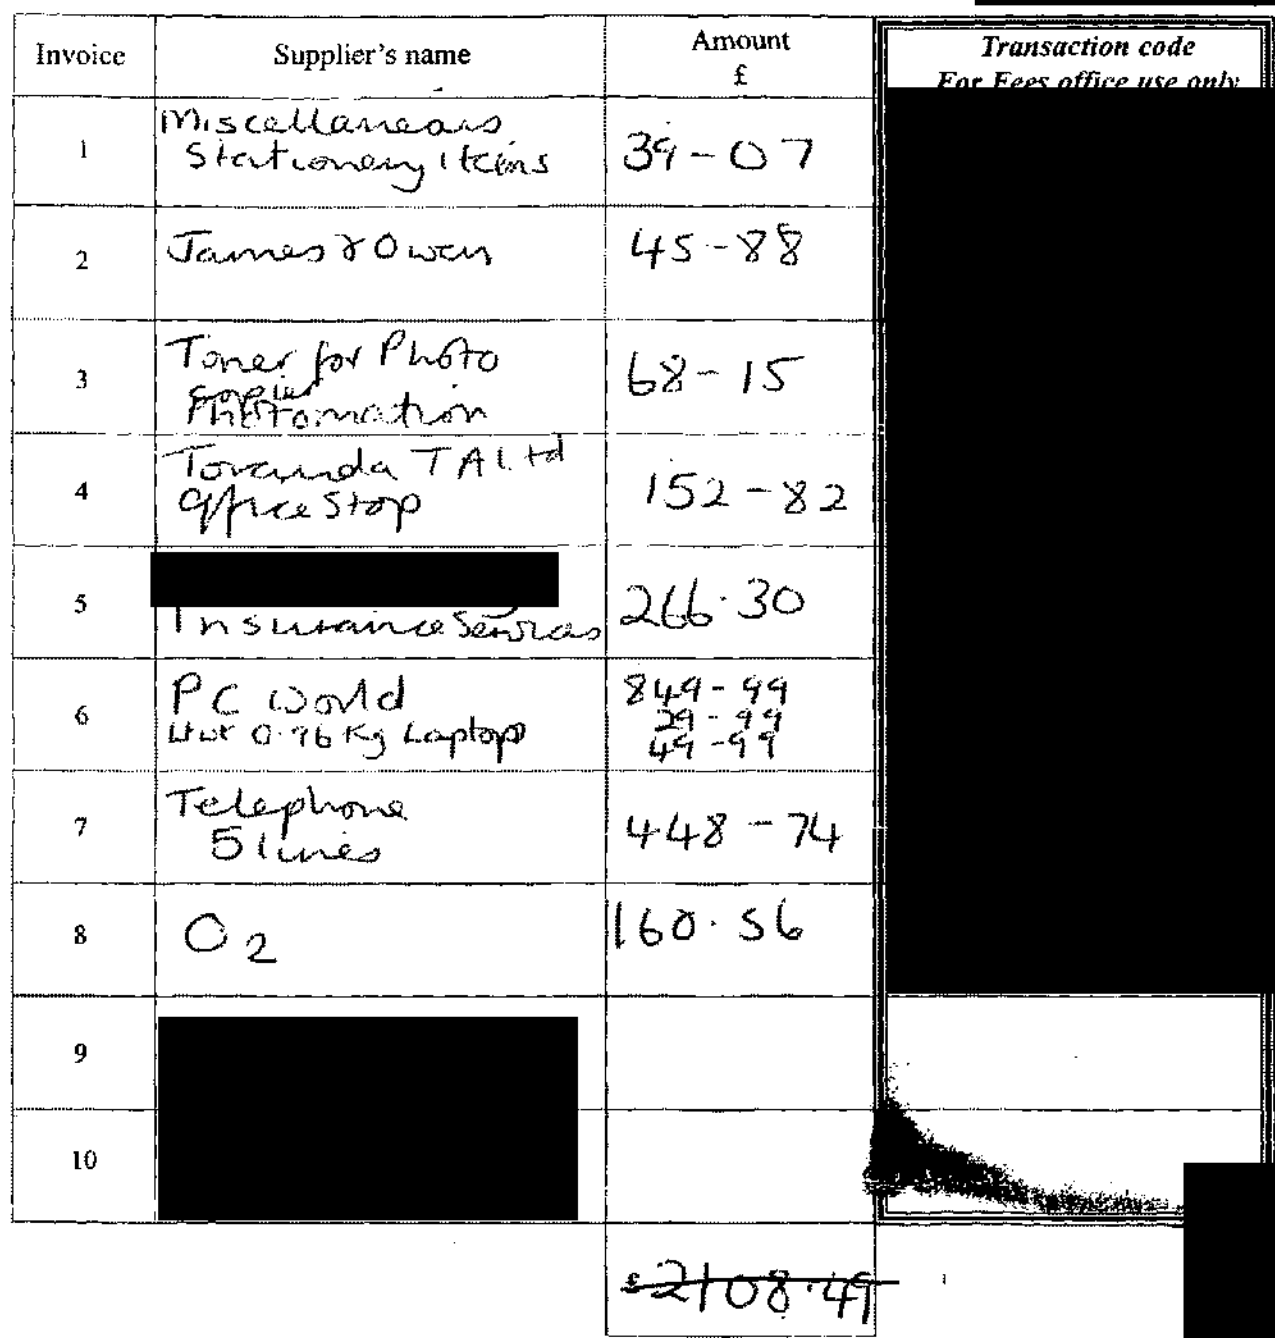 Invoice Supplier's name Amount £ Transaction code
For Fees office use only
1 Miscellaneous
Stationery items 39-07
2 James & Owen 45-88
3 Toner for Photo
copier
Photomation 68-15
4 Toranda TA Ltd
Office Stop 152-82
5 Insurance Services 266.30
6 PC World 849-99
29-99
Ltwt 0.96 Kg Laptop 49-99
7 Telephone
5 lines 448-74
8 O2 160.56
9
10
£2108.49